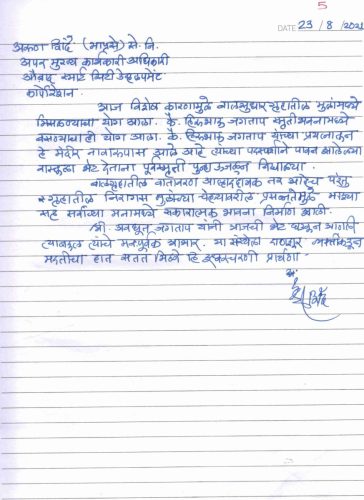 5
DATE 23 / 8 / 2021
अरुण शिंदे (भाप्रसे) से. नि.
अपर मुख्य कार्यकारी अधिकारी
औरंगाबाद स्मार्ट सिटी डेव्हलपमेंट
कॉर्पोरेशन.
आज विशेष कारणामुळे बालसुधार गृहातील मुलांमध्ये
मिसळण्याचा योग आला. कै. हिरूभाऊ जगताप स्मृतीभवनामध्ये
बसण्याचाही योग आला. कै. हिरूभाऊ जगताप यांच्या प्रयत्नातून
हे मंदिर नावारुपास झाले आहे त्यांच्या पदस्पर्शाने पावन झालेल्या
वास्तूला भेट देताना पूर्वस्मृती पुन्हा उजळून निघाल्या.
बालगृहातील वातावरण आल्हाददायक तर आहेच परंतु
गृहातील निरागस मुलांच्या चेहऱ्यावरील प्रसन्नतेमुळे माझ्या
सह सर्वांच्या मनामध्ये सकारात्मक भावना निर्माण झाली.
श्री. अवधूत जगताप यांनी आजची भेट घडवून आणली
त्याबद्दल त्यांचे मनःपूर्वक आभार. या संस्थेला दानशूर व्यक्तींकडून
मदतीचा हात सतत मिळो हि ईश्वरचरणी प्रार्थना.